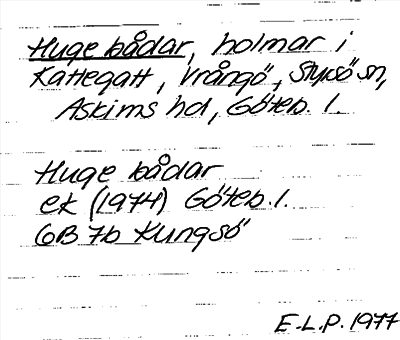 Huge bådar, holmar i
Kattegatt, Vrångö, Styrsö sn,
Askims hd, Göteb. l.
Huge bådar
ek (1974) Göteb. l.
6B 7b Kungsö
E.L.P. 1977